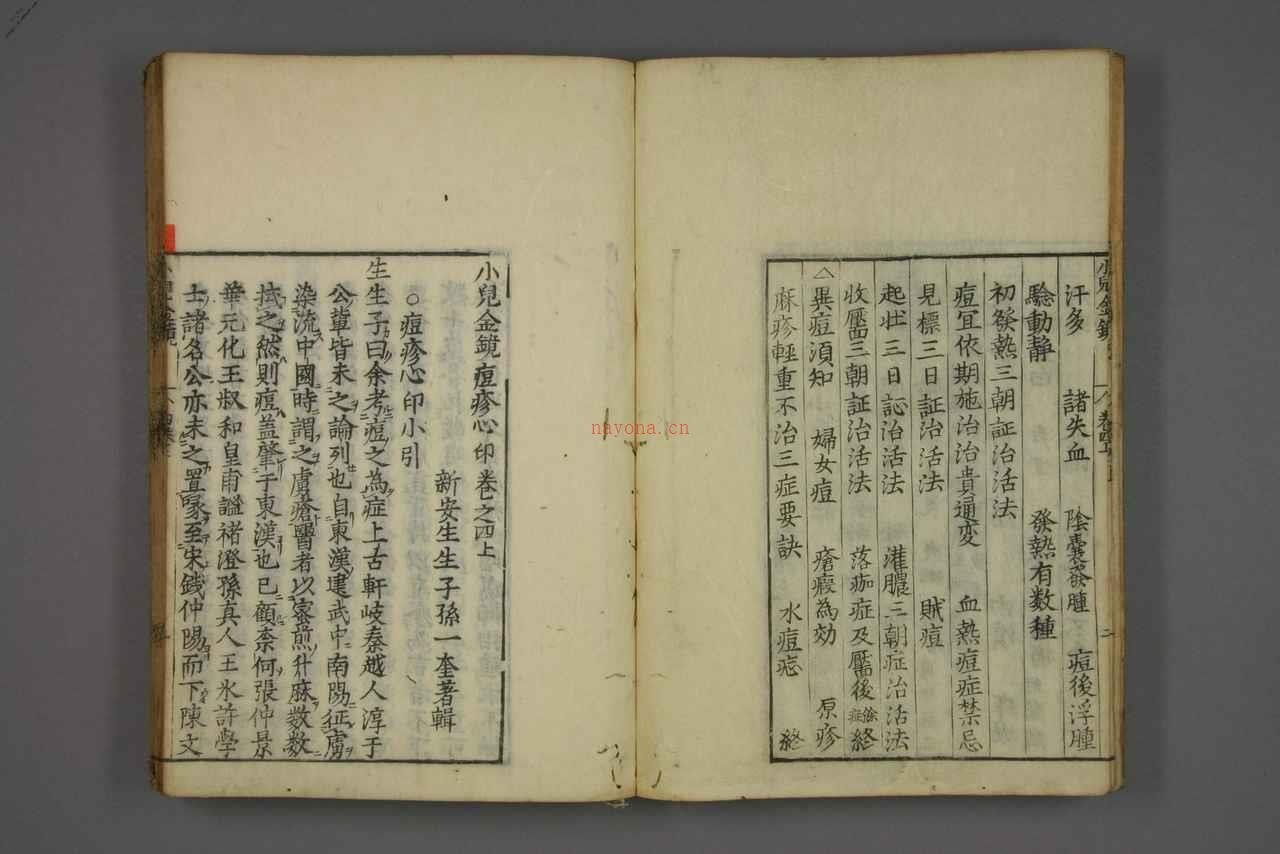 汗多　諸失血　陰囊發腫　痘後浮腫
驗動靜　發熱有数種
初發熱三朝証治活法
痘宜依期施治治貴通変　血熱痘症禁忌
見標三日証治活法　賊痘
起壯三日証治活法　灌膿三朝症治活法
收靨三朝証治活法　落痂症及靨後餘症終
異痘須知　婦女痘　瘡瘢為効　原疹
麻疹輕重不治三症要訣　水痘　終
nayona.cn
小兒金鏡痘疹心印卷之四上
新安生生子孫一奎著輯
○痘疹心印小引
生生子曰余考痘之為症上古軒岐秦越人淳于
公輩皆未之論列也自東漢建武中南陽征虜
染流中國時謂之虜瘡醫者以蜜煎升麻数数
拭之然則痘蓋肇于東漢也已顧柰何張仲景
華元化王叔和皇甫謐褚澄孫真人王氷許學
士諸名公亦未之置喙至宋錢仲陽而下陳文